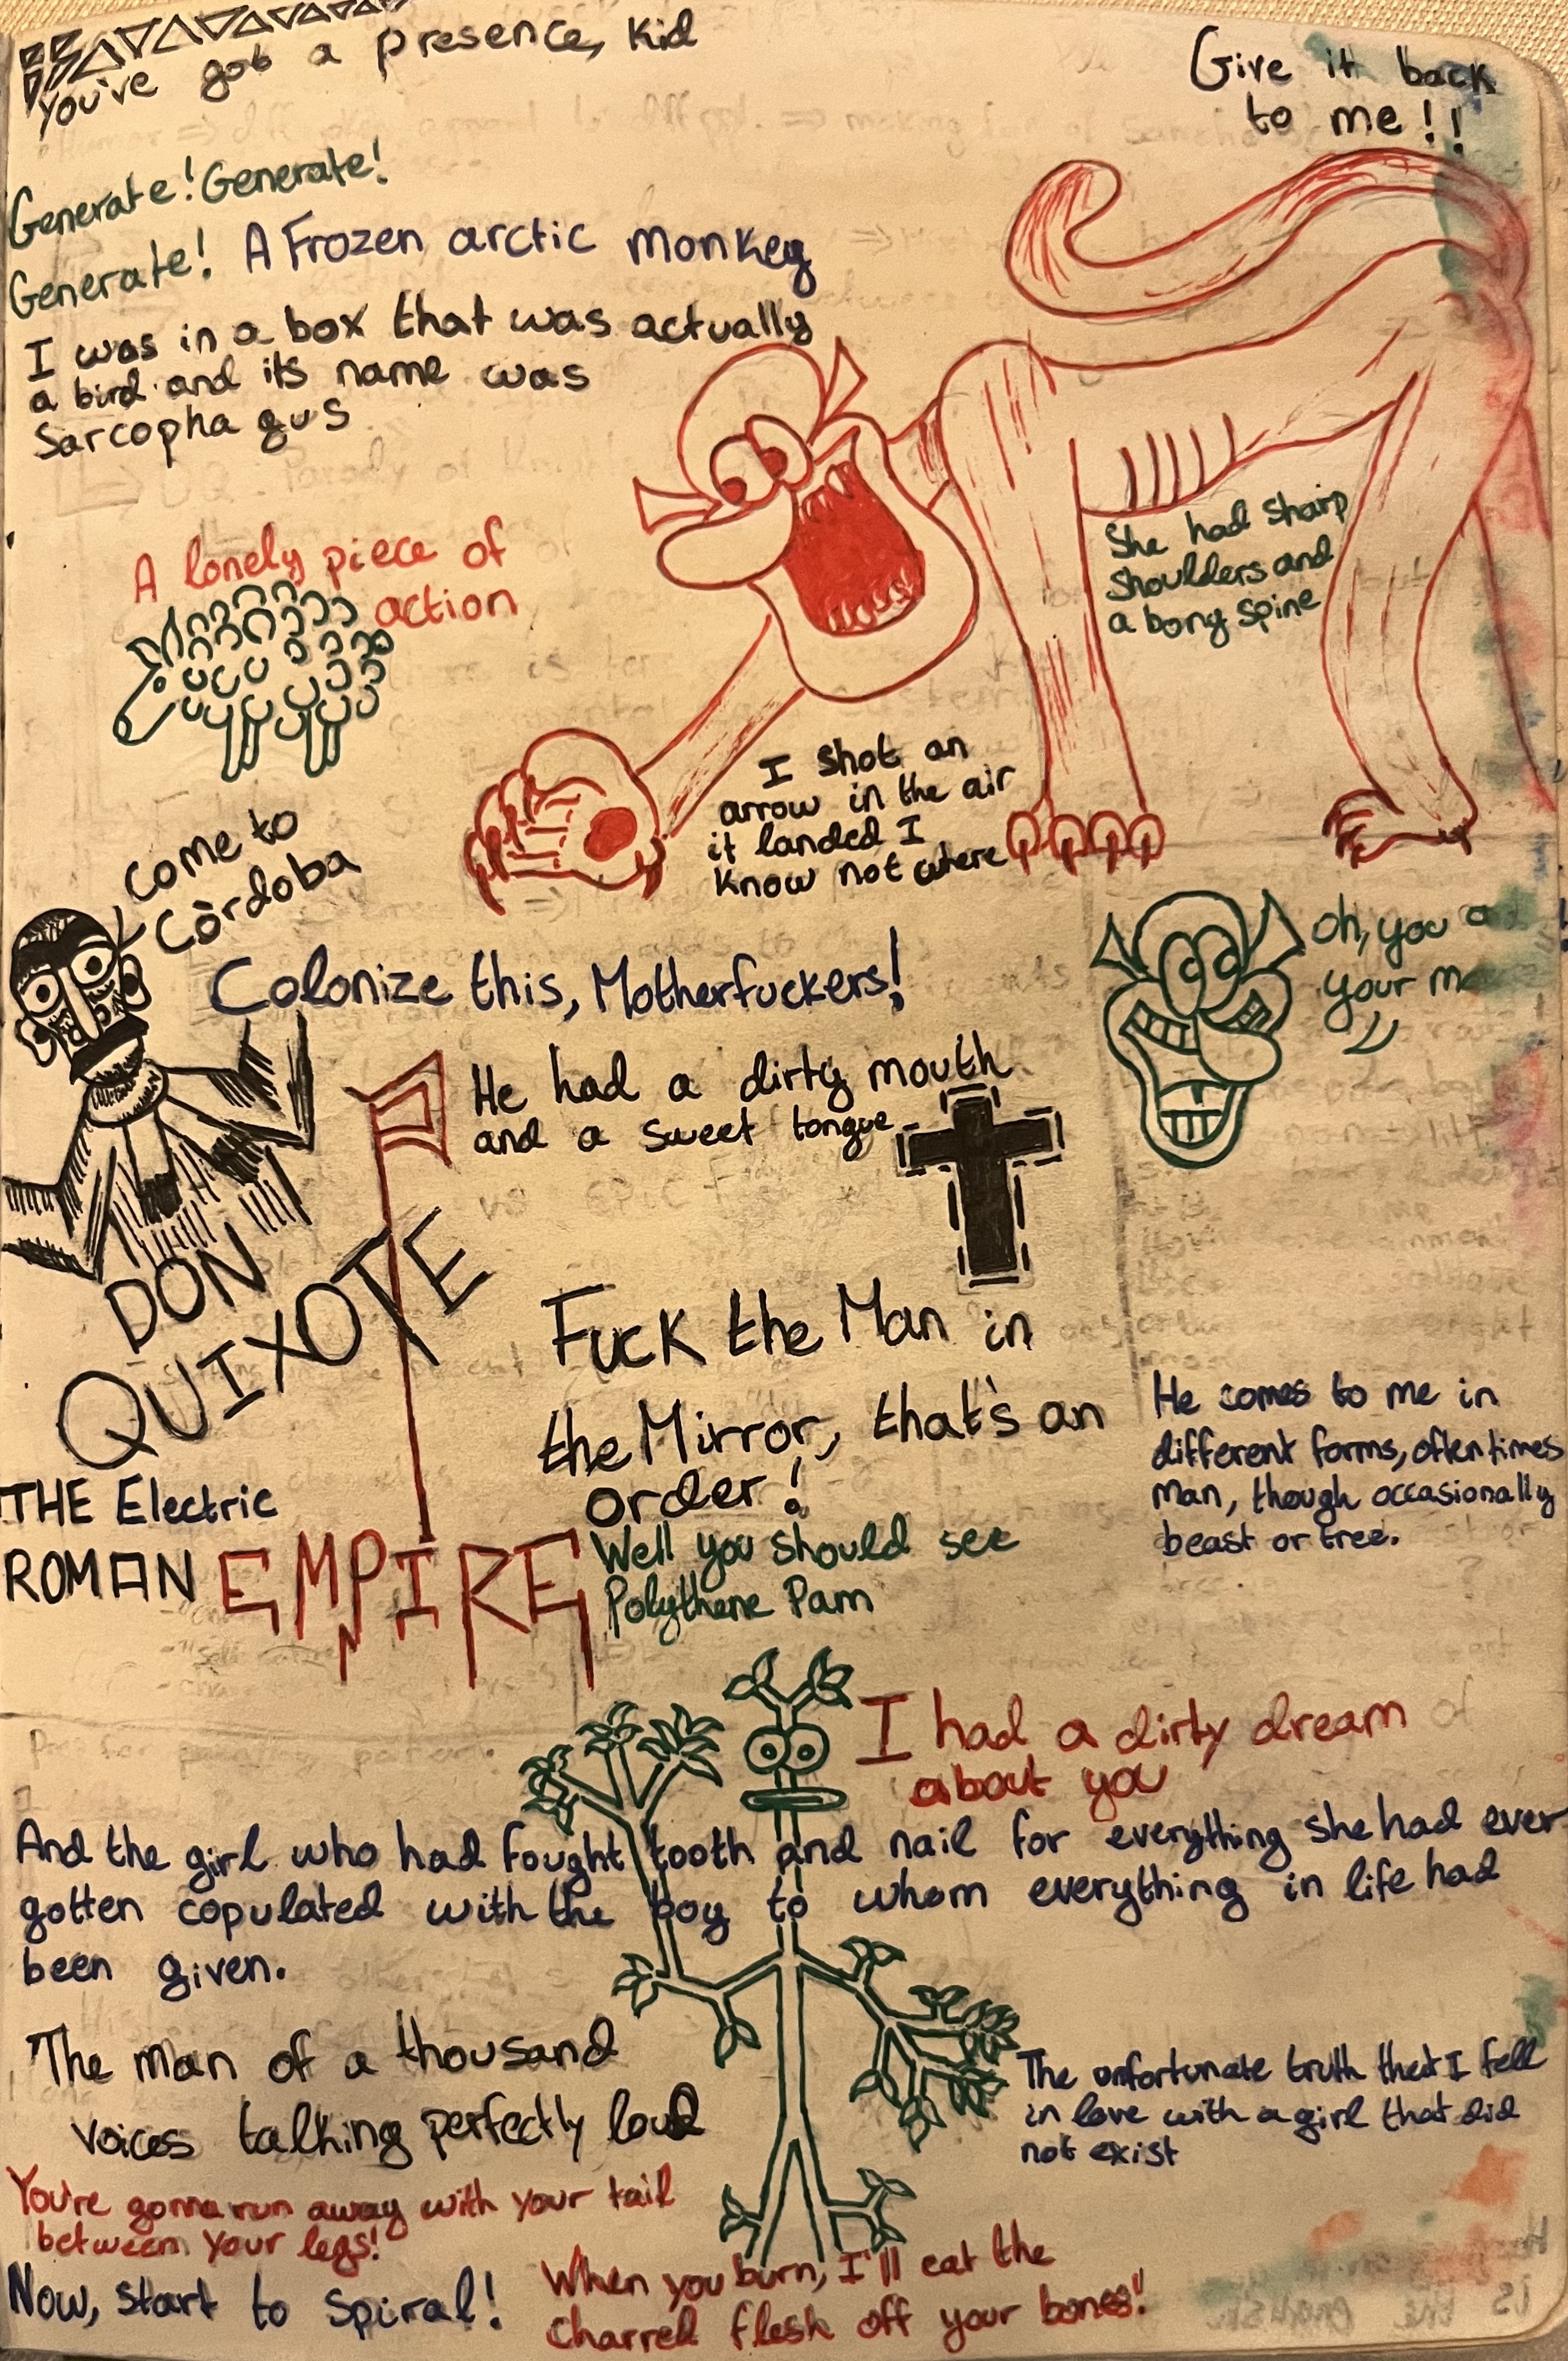 You've got a presence, Kid
Give it back
to me!!
Generate! Generate!
Generate! A Frozen arctic monkey
I was in a box that was actually
a bird and its name was
Sarcophagus
A lonely piece of
action
She had sharp
shoulders and
a bony spine
I shot an
arrow in the air
it landed I
know not where
Come to
Còrdoba
Oh, you
your
Colonize this, Motherfuckers!
He had a dirty mouth
and a sweet tongue
DON
QUIXOTE
Fuck the Man in
the Mirror, that's an
order!
He comes to me in
different forms, oftentimes
man, though occasionally
beast or tree.
THE Electric
ROMAN EMPIRE
Well you should see
Polythene Pam
I had a dirty dream
about you
And the girl who had fought tooth and nail for everything she had ever
gotten copulated with the boy to whom everything in life had
been given.
The man of a thousand
voices talking perfectly loud
The unfortunate truth that I fell
in love with a girl that did
not exist
You're gonna run away with your tail
between your legs!
Now, start to spiral!
When you burn, I'll eat the
charred flesh off your bones!